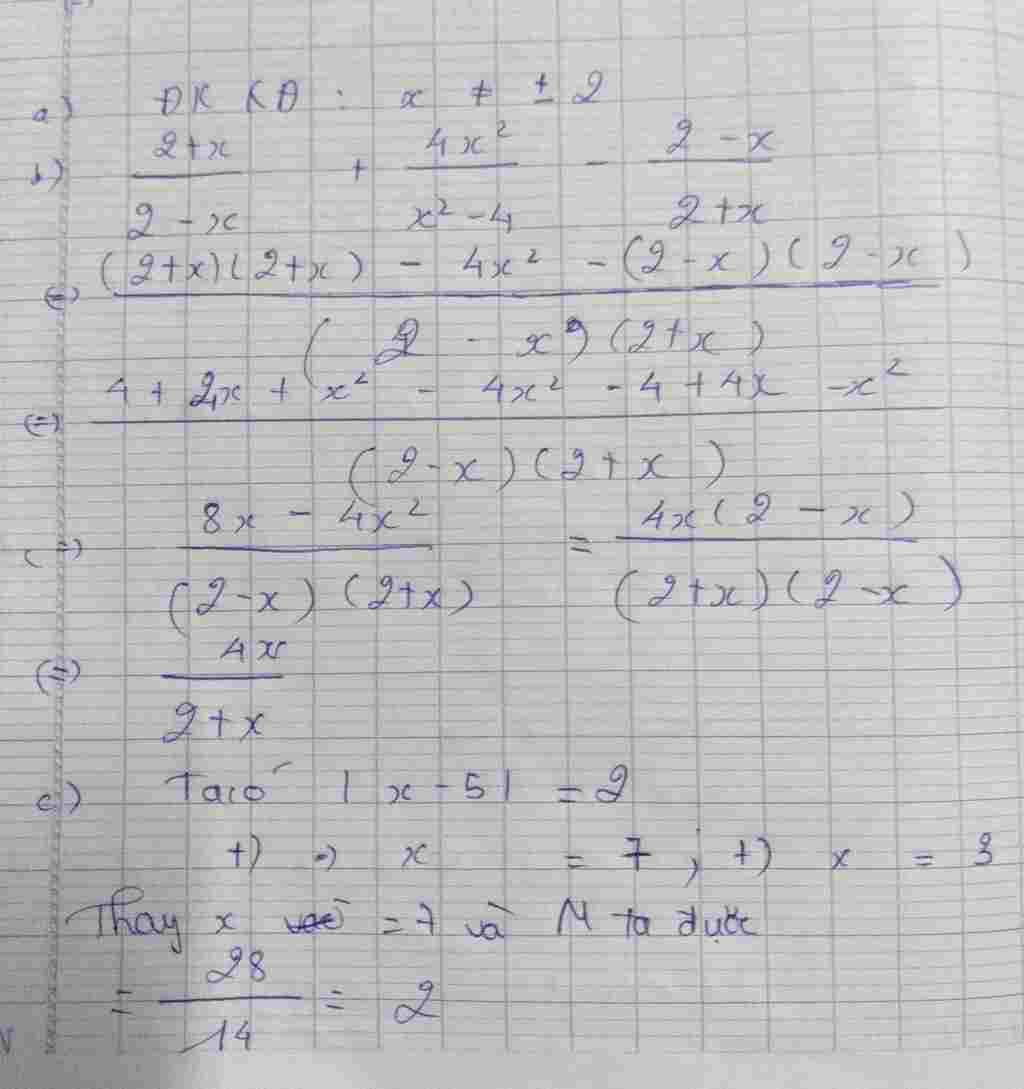 a) ĐKXĐ : x ≠ ± 2
b) (2+x)/(2-x) + 4x²/(x²-4) - (2-x)/(2+x)
(=) ((2+x)(2+x) - 4x² - (2-x)(2-x))/((2-x)(2+x))
(=) (4 + 4x + x² - 4x² - 4 + 4x - x²)/((2-x)(2+x))
(=) (8x - 4x²)/((2-x)(2+x)) = 4x(2-x)/((2+x)(2-x))
(=) 4x/(2+x)
c) Ta có |x-5| = 2
+) => x = 7 ; +) x = 3
Thay x = 7 và M ta được
= 28/14 = 2